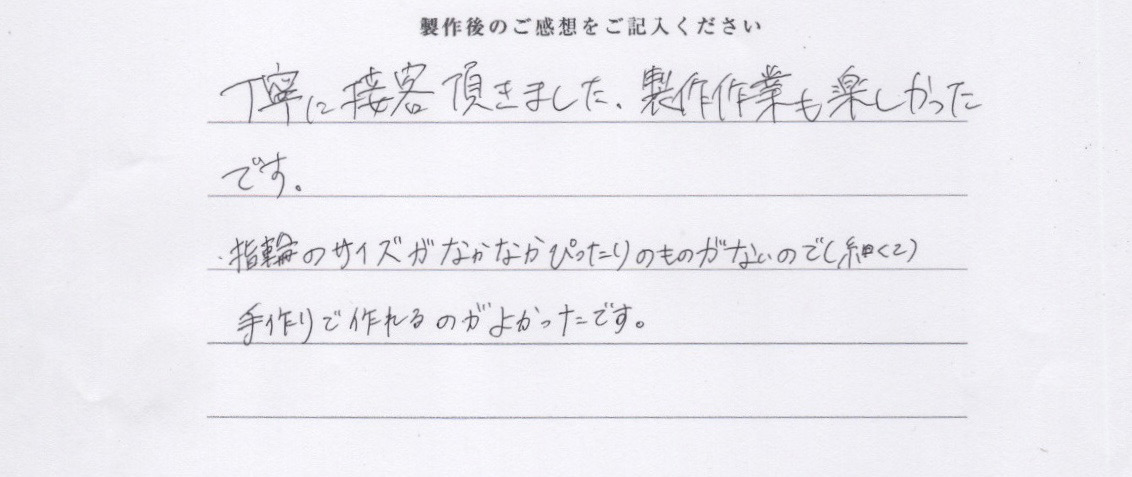 製作後のご感想をご記入ください
丁寧に接客頂きました、製作作業も楽しかった
です。
・指輪のサイズがなかなかぴったりのものがないので(細くて)
手作りで作れるのがよかったです。